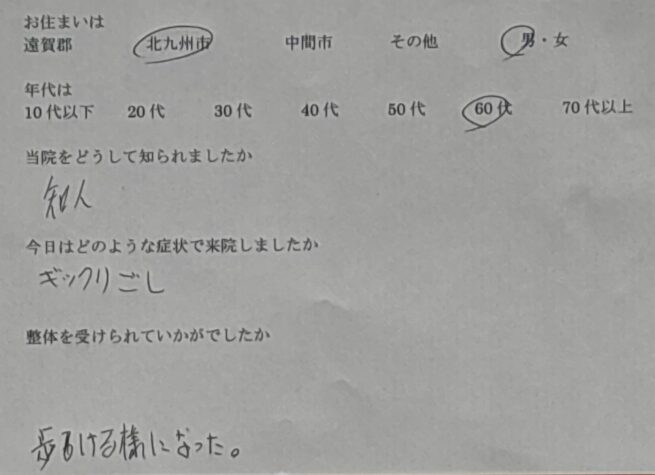 お住まいは
遠賀郡 北九州市 中間市 その他 男・女
年代は
10代以下 20代 30代 40代 50代 60代 70代以上
当院をどうして知られましたか
知人
今日はどのような症状で来院しましたか
ギックリごし
整体を受けられていかがでしたか
歩るける様になった。